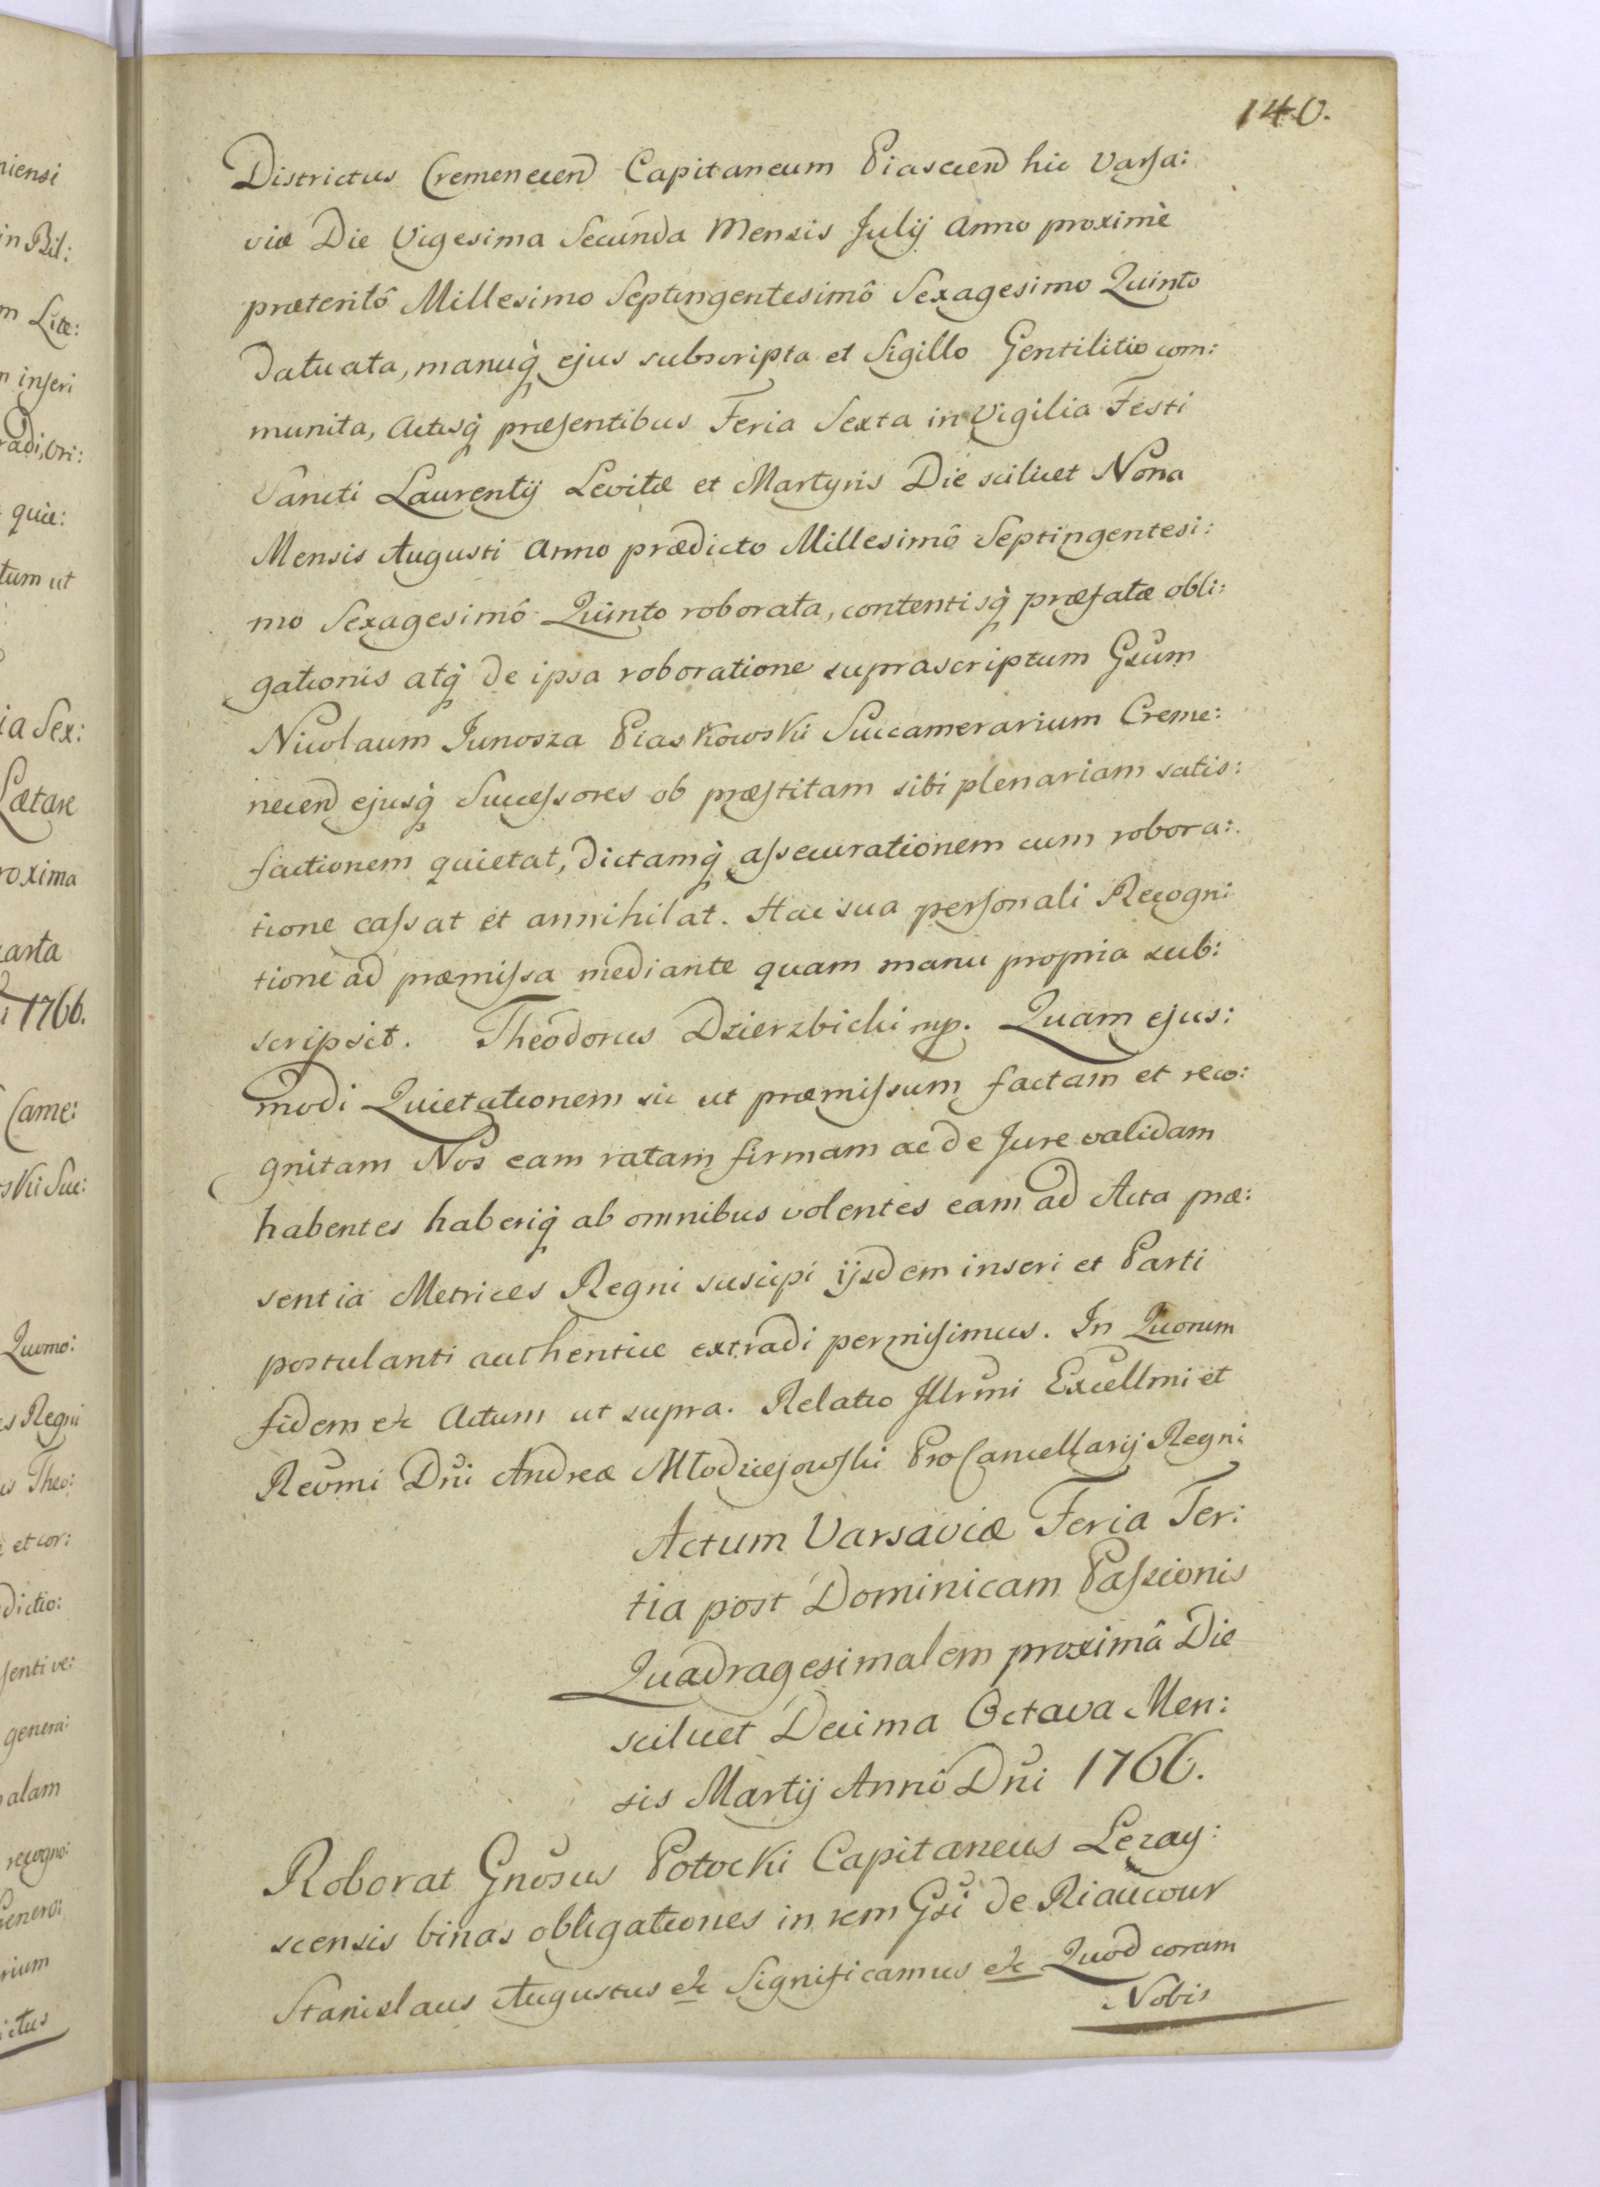 140.
Districtus Cremenecen Capitaneum Piascien hic Varsa:
viæ Die Vigesima Secunda Mensis Julij Anno proximè
præteritô Millesimo Septingentesimô Sexagesimo Quinto
Datuata, manuq̀ ejus subscripta et Sigillo Gentilitio com:
munita, Actisq̀ præsentibus Feria Sexta in Vigilia Festi
Sancti Laurentij Levitæ et Martyris Die scilicet Nona
Mensis Augusti Anno prædicto Millesimô Septingentesi:
mo Sexagesimô Quinto roborata, contentisq̀ præfatæ obli:
gationis atq̀ de ipsa roboratione suprascriptum Gsum
Nicolaum Junosza Piaskowski Succamerarium Creme:
necen ejusq̀ Successores ob præstitam sibi plenariam satis:
factionem quietat, dictamq̀ assecurationem cum robora:
tione cassat et annihilat. Hac sua personali Recogni
tione ad præmissa mediante quam manu propria sub:
scripsit. Theodorus Dzierzbicki mp. Quam ejus:
modi Quietationem sic ut præmissum factam et reco:
gnitam Nos eam ratam firmam ac de Jure validam
habentes haberiq̀ ab omnibus volentes eam ad Acta præ:
sentia Metrices Regni suscipi ijsdem inseri et Parti
postulanti authentice extradi permisimus. In Quorum
fidem etc Actum ut supra. Relatio Illrmi Excellmi et
Revmi Dni Andreæ Młodziejowski ProCancellarij Regni
Actum Varsaviæ Feria Ter:
tia post Dominicam Passionis
Quadragesimalem proximâ Die
scilicet Decima Octava Men:
sis Martij Anno Dni 1766.
Roborat Gnosus Potocki Capitaneus Lezay:
scensis binas obligationes in rem Gsi de Riaucour
Stanislaus Augustus etc Significamus etc Quod coram
Nobis